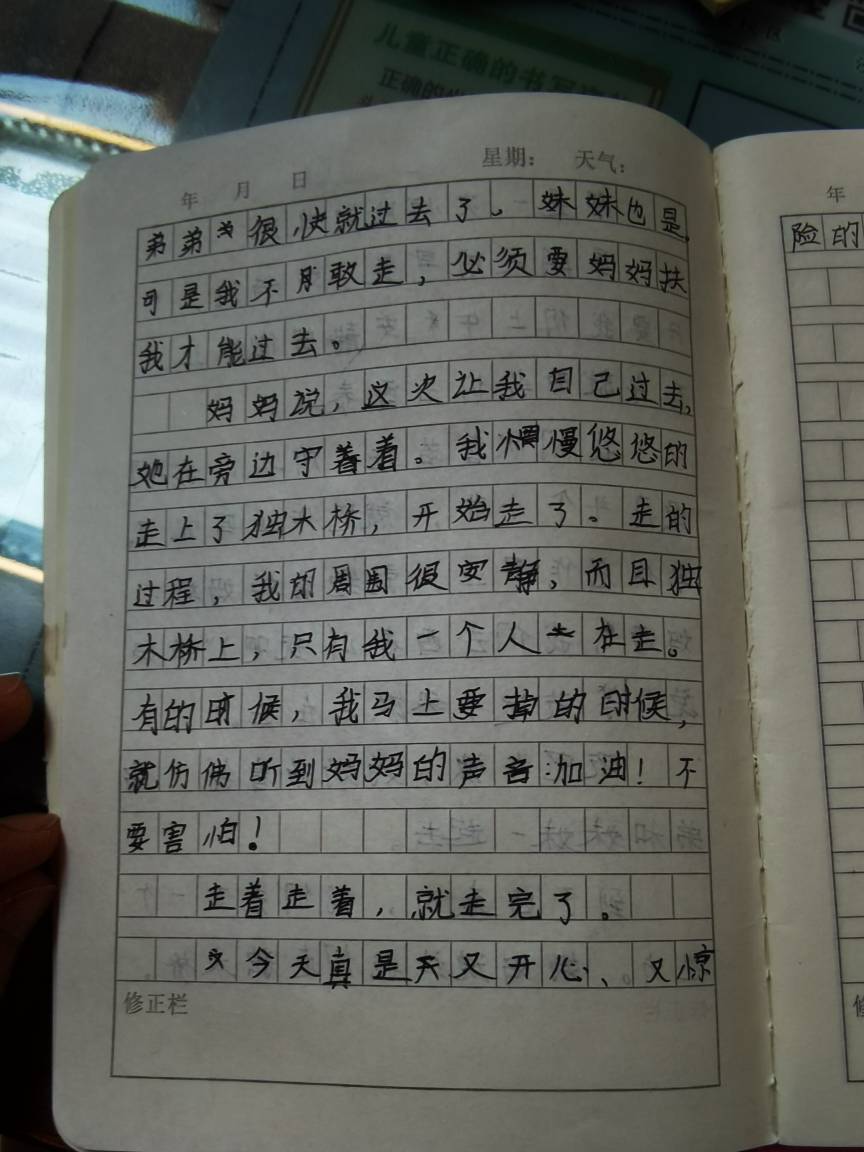 儿童正确的书写姿
正确的坐
年 月 日 星期： 天气：
弟弟很快就过去了。妹妹也是，
可是我不敢走，必须要妈妈扶
我才能过去。
妈妈说，这次让我自己过去，
她在旁边守着着。我慢慢悠悠的
走上了独木桥，开始走了。走的
过程，我胡周围很安静，而且独
木桥上，只有我一个人在走。
有的时候，我马上要掉的时候，
就仿佛听到妈妈的声音：加油！不
要害怕！
走着走着，就走完了。
今天真是天又开心、又惊
修正栏
年
险的